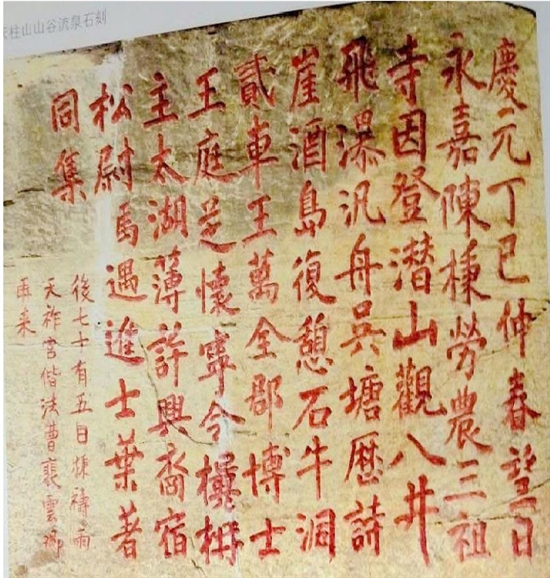 天柱山山谷流泉石刻
慶元丁巳仲春望日
永嘉陳楝勞農三祖
寺因登潛山觀八井
飛瀑汎舟吳塘歷詩
崖酒島復憩石牛洞
貳車王萬全郡博士
王庭芝懷寧令權
主太湖簿許興裔宿
松尉馬遇進士葉著
同集
後七十有五日楝禱雨
天祚宮偕法曹裴雲卿
再来